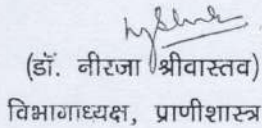 (डॉ. नीरजा श्रीवास्तव)
विभागाध्यक्ष, प्राणीशास्त्र